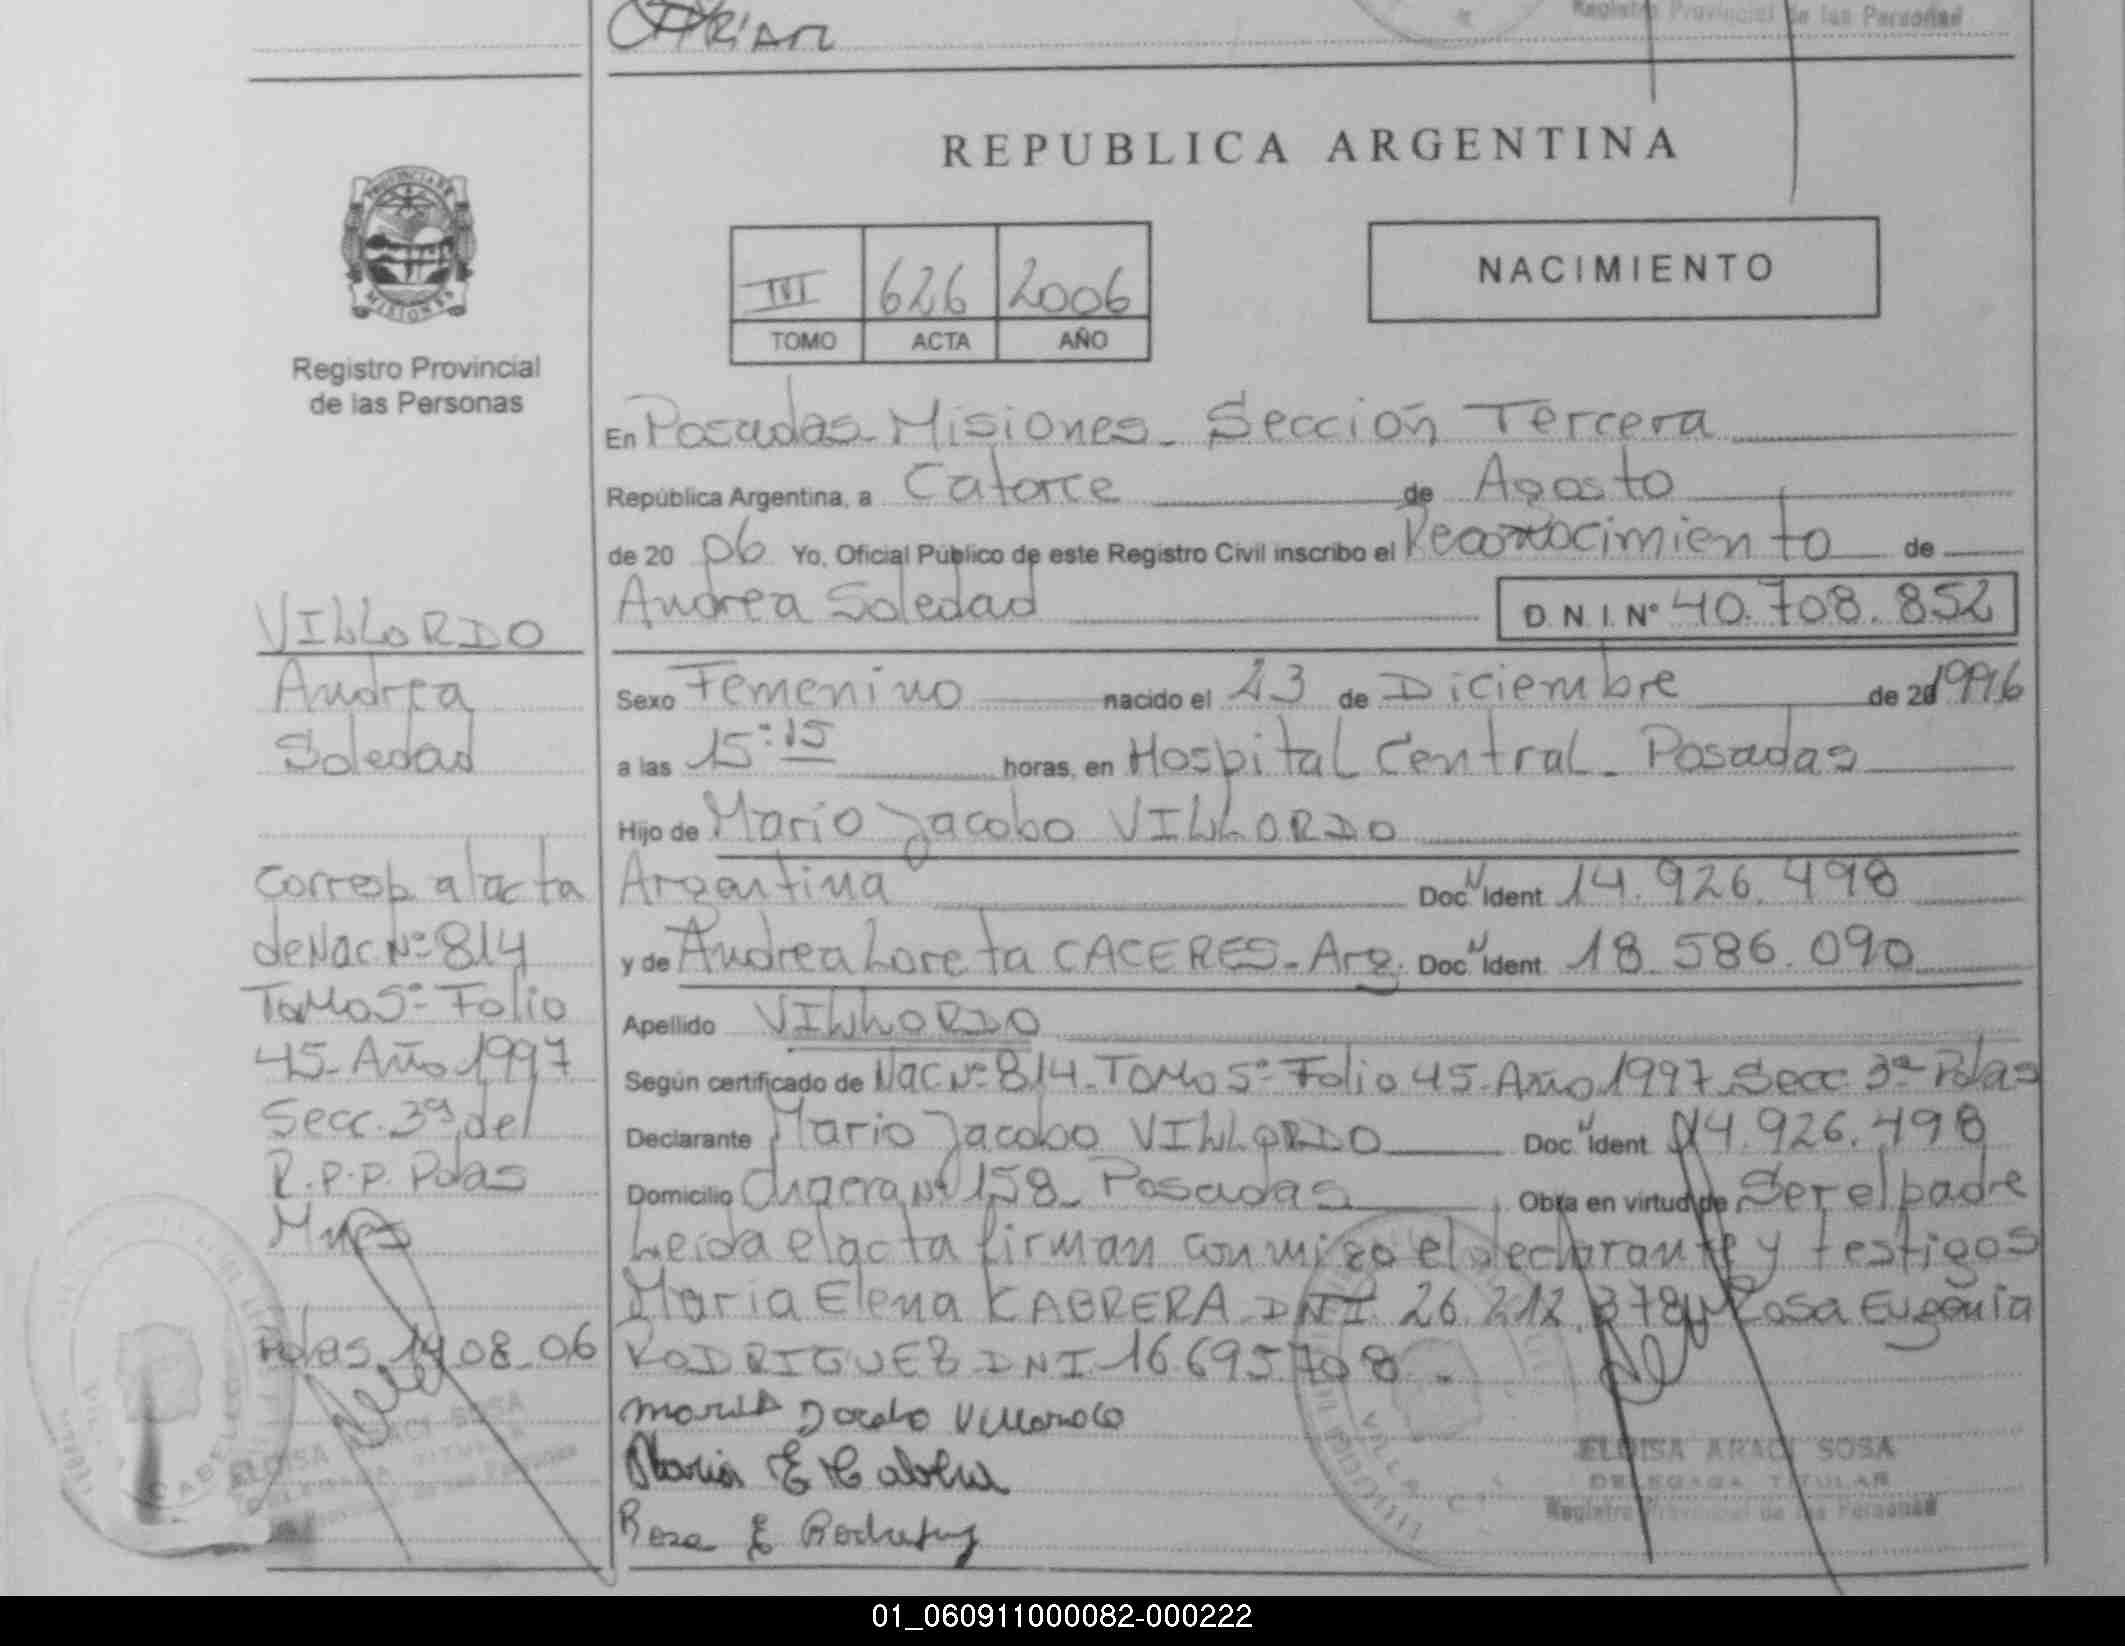 Registro Provincial de las Personas
REPUBLICA ARGENTINA
PROVINCIA DE
MISIONES
Registro Provincial
de las Personas
III 626 2006
TOMO ACTA AÑO
NACIMIENTO
En Posadas - Misiones - Sección Tercera
República Argentina, a Catorce de Agosto
de 20 06 Yo, Oficial Público de este Registro Civil inscribo el Reconocimiento de
Andrea Soledad D.N.I. Nº 40.708.852
Sexo Femenino nacido el 23 de Diciembre de 20 1996
a las 15:15 horas, en Hospital Central - Posadas
Hijo de Mario Jacobo VILLORDO
Argentina Doc N Ident 14.926.498
y de Andrea Loreta CACERES - Arg. Doc N Ident 18.586.090
Apellido VILLORDO
Según certificado de Nac Nº 814 - Tomo 5º - Folio 45 - Año 1997 Secc 3ª Pdas
Declarante Mario Jacobo VILLORDO Doc N Ident 14.926.498
Domicilio Chacra Nº 158 - Posadas Obra en virtud de Ser el padre
Leida el acta firman conmigo el declarante y testigos
Maria Elena KABRERA DNI 26.212.378 y Rosa Eugenia
RODRIGUEZ DNI 16.695.708.
VILLORDO
Andrea
Soledad
Corresp. al acta
de Nac Nº 814
Tomo 5º - Folio
45 - Año 1997
Secc. 3ª del
R.P.P. Pdas
Mnes
Pdas, 14 08 06
ELOISA ARACI SOSA
DELEGADA TITULAR
Registro Provincial de las Personas
Jacobo Villordo
Maria E
Rosa E
ELOISA ARACI SOSA
DELEGADA TITULAR
Registro Provincial de las Personas
01_060911000082-000222